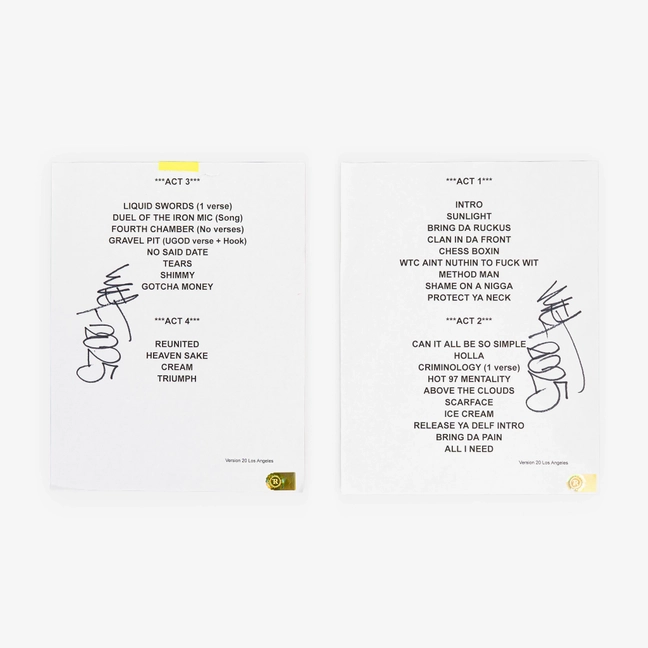 ***ACT 3***
LIQUID SWORDS (1 verse)
DUEL OF THE IRON MIC (Song)
FOURTH CHAMBER (No verses)
GRAVEL PIT (UGOD verse + Hook)
NO SAID DATE
TEARS
SHIMMY
GOTCHA MONEY
***ACT 4***
REUNITED
HEAVEN SAKE
CREAM
TRIUMPH
Version 20 Los Angeles
R
***ACT 1***
INTRO
SUNLIGHT
BRING DA RUCKUS
CLAN IN DA FRONT
CHESS BOXIN
WTC AINT NUTHIN TO FUCK WIT
METHOD MAN
SHAME ON A NIGGA
PROTECT YA NECK
***ACT 2***
CAN IT ALL BE SO SIMPLE
HOLLA
CRIMINOLOGY (1 verse)
HOT 97 MENTALITY
ABOVE THE CLOUDS
SCARFACE
ICE CREAM
RELEASE YA DELF INTRO
BRING DA PAIN
ALL I NEED
Version 20 Los Angeles